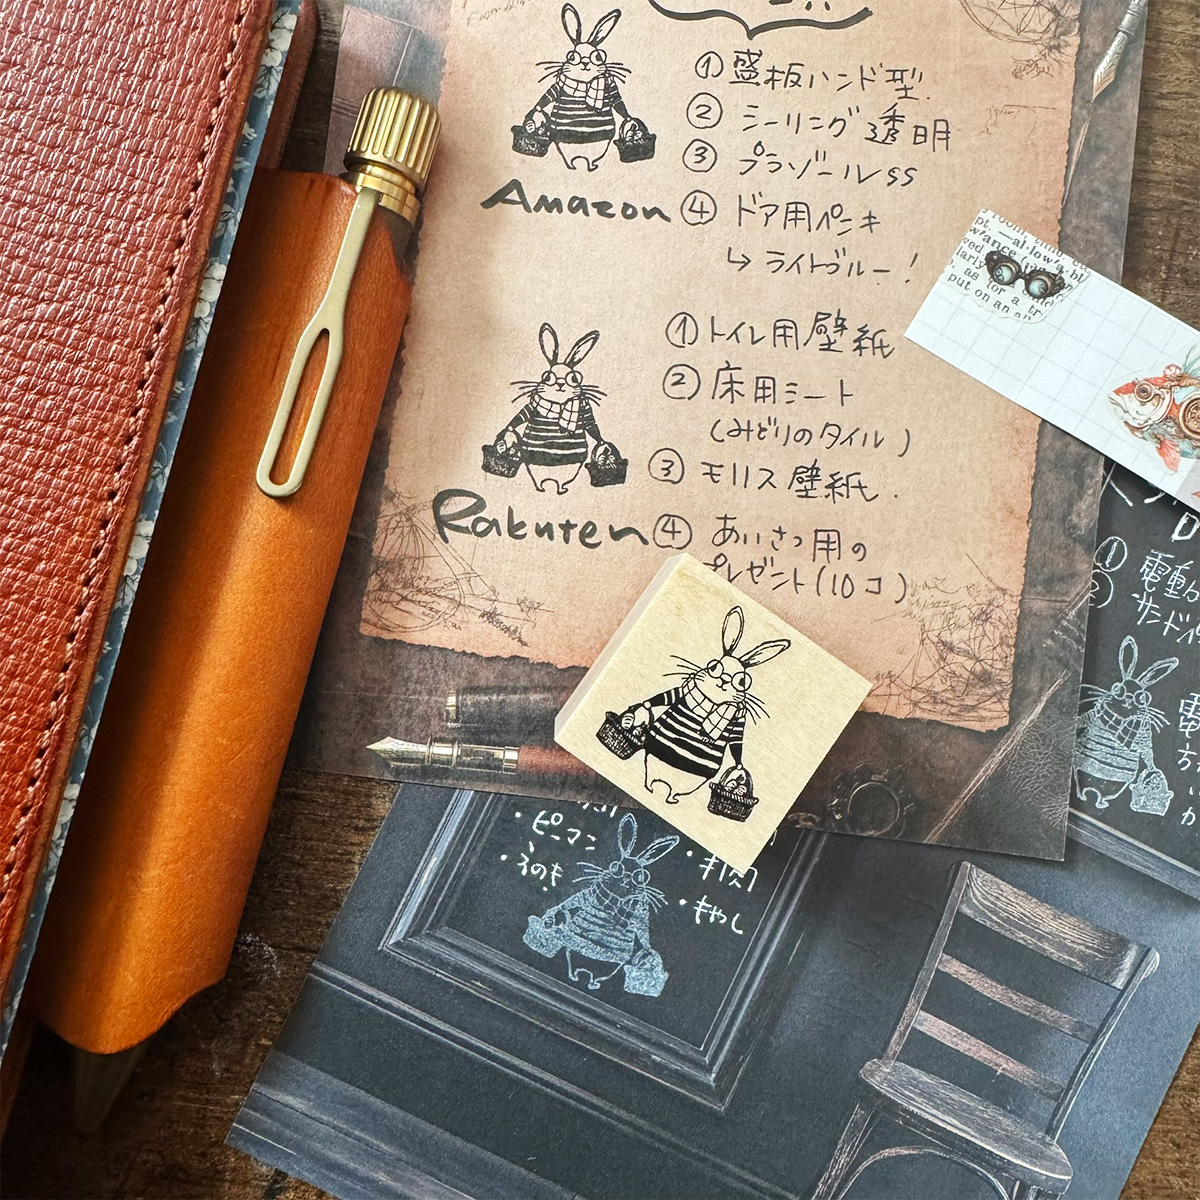 ①盛板ハンド型.
②シーリング透明
③プラゾールSS
Amazon
④ドア用ペンキ
↳ライトブルー!
①トイレ用壁紙
②床用シート
(みどりのタイル)
③モリス壁紙.
Rakuten
④あいさつ用の
プレゼント(10コ)
wance
as for a
put on an
①電動
サンド
・ピーマン
・もやし